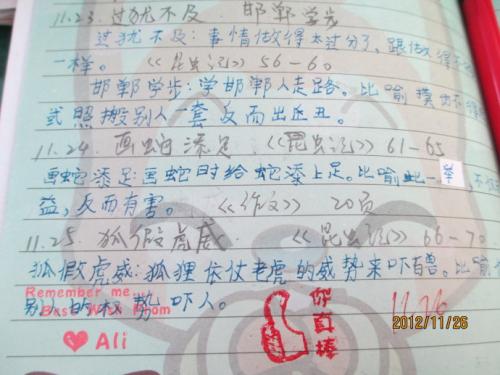 11.23. 过犹不及 邯郸学步
过犹不及：事情做得太过分了，跟做得不
一样。《昆虫记》56－60
邯郸学步：学邯郸人走路。比喻
或照搬别人一套反而出丑。
11.24. 画蛇添足 《昆虫记》61－65
画蛇添足：画蛇时给蛇添上足。比喻此一举，不
益，反而有害。《作文》20页
11.25. 狐假虎威 《昆虫记》66－70
狐假虎威：狐狸依仗老虎的威势来吓百兽。比喻
别人的权势吓人。
Remember me
Best Mom
Ali
你真棒
11.26
2012/11/26